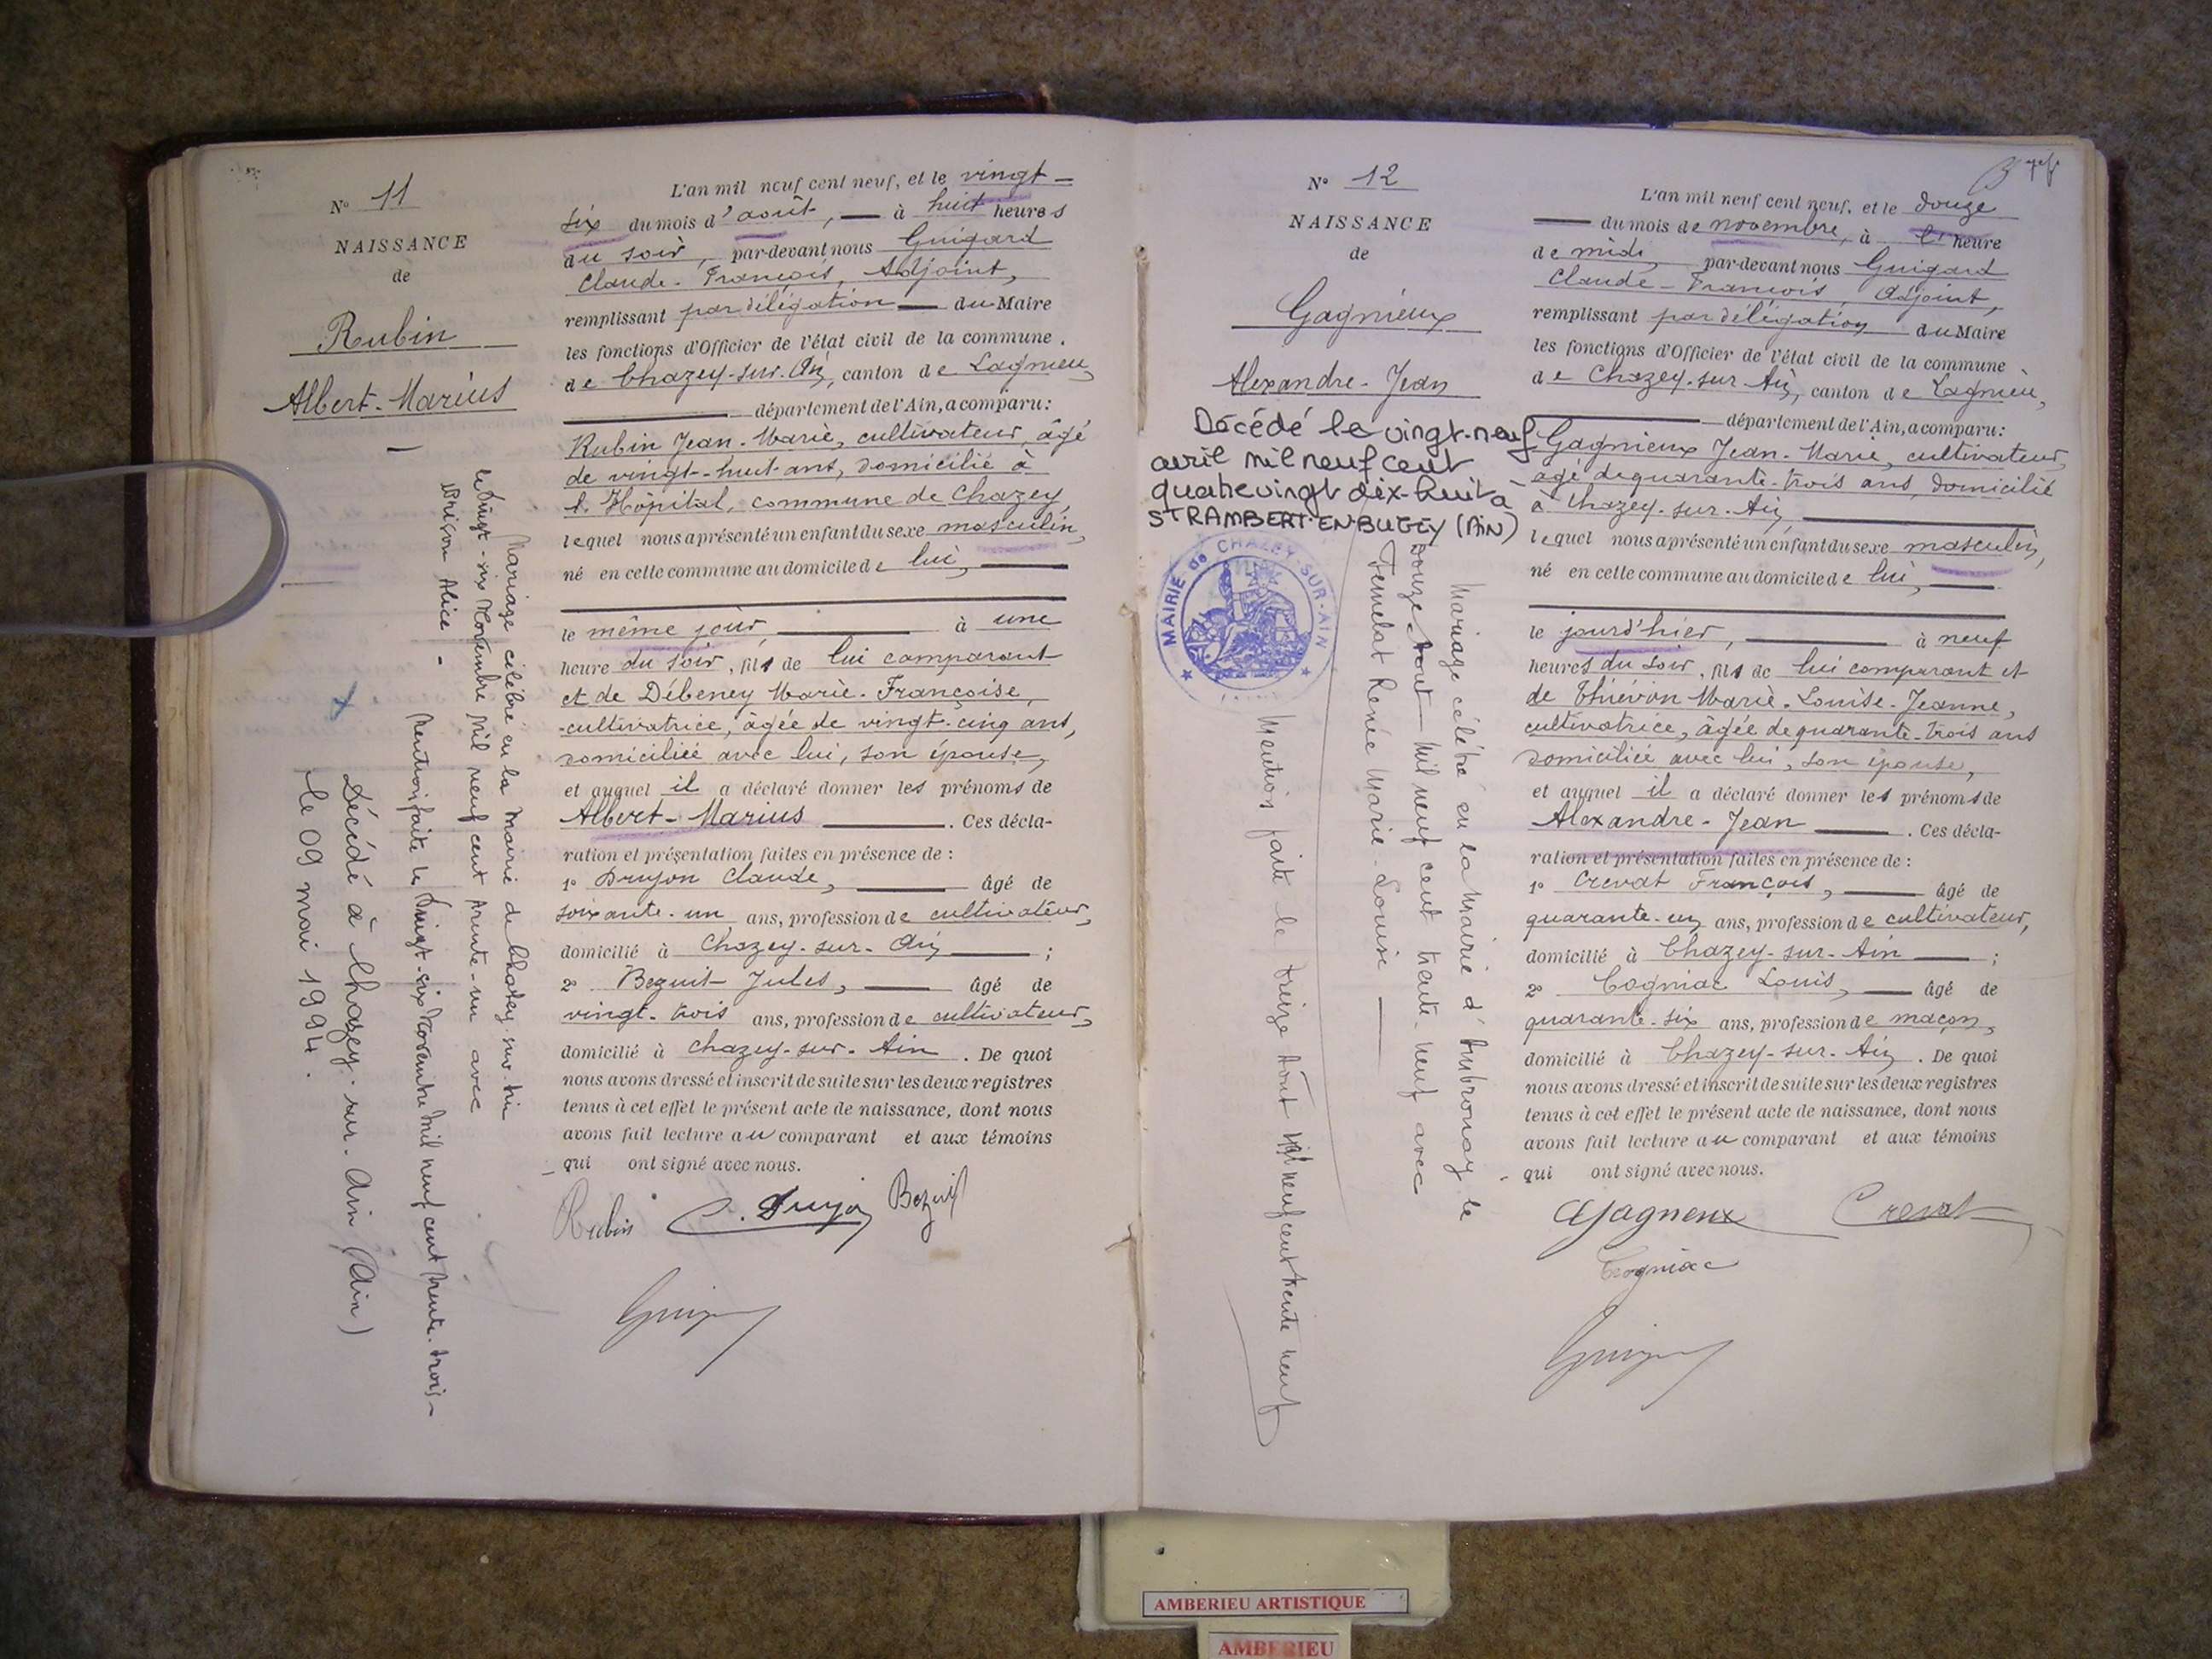 N° 11
NAISSANCE
de
Rubin
Albert-Marius
L'an mil neuf cent neuf, et le vingt-
six du mois d'août, à huit heures
du soir, par-devant nous Guigard
Claude-François, Adjoint,
remplissant par délégation du Maire
les fonctions d'Officier de l'état civil de la commune
de Chazey-sur-Ain, canton de Lagnieu,
département de l'Ain, a comparu:
Rubin Jean-Marie, cultivateur, âgé
de vingt-huit ans, domicilié à
l'Hôpital, commune de Chazey,
lequel nous a présenté un enfant du sexe masculin,
né en cette commune au domicile de lui,
le même jour, à une
heure du soir, fils de lui comparant
et de Débeney Marie-Françoise,
cultivatrice, âgée de vingt-cinq ans,
domiciliée avec lui, son épouse,
et auquel il a déclaré donner les prénoms de
Albert-Marius. Ces décla-
ration et présentation faites en présence de :
1° Drujon Claude, âgé de
soixante-un ans, profession de cultivateur,
domicilié à Chazey-sur-Ain ;
2° Bezuit Jules, âgé de
vingt-trois ans, profession de cultivateur,
domicilié à Chazey-sur-Ain. De quoi
nous avons dressé et inscrit de suite sur les deux registres
tenus à cet effet le présent acte de naissance, dont nous
avons fait lecture au comparant et aux témoins
qui ont signé avec nous.
Rubin C. Drujon Bezuit
Mariage célébré en la Mairie de Chazey-sur-Ain
le vingt-six Novembre mil neuf cent trente-un avec
Alice -
Mention faite le vingt-six Novembre mil neuf cent trente-trois-
Décédé à Chazey-sur-Ain (Ain)
le 09 mai 1994.
N° 12
NAISSANCE
de
Gagnieux
Alexandre-Jean
Décédé le vingt-neuf
avril mil neuf cent
quatre vingt dix-huit à
ST RAMBERT-EN-BUGEY (AIN)
MAIRIE de CHAZEY-SUR-AIN
L'an mil neuf cent neuf, et le douze
du mois de novembre, à l'heure
de midi, par-devant nous Guigard
Claude-François, Adjoint,
remplissant par délégation du Maire
les fonctions d'Officier de l'état civil de la commune
de Chazey-sur-Ain, canton de Lagnieu,
département de l'Ain, a comparu:
Gagnieux Jean-Marie, cultivateur,
âgé de quarante-trois ans, domicilié
à Chazey-sur-Ain,
lequel nous a présenté un enfant du sexe masculin,
né en cette commune au domicile de lui,
le jourd'hier, à neuf
heures du soir, fils de lui comparant et
de Thiévon Marie-Louise-Jeanne,
cultivatrice, âgée de quarante-trois ans
domiciliée avec lui, son épouse,
et auquel il a déclaré donner les prénoms de
Alexandre-Jean. Ces décla-
ration et présentation faites en présence de :
1° Crevat François, âgé de
quarante-un ans, profession de cultivateur,
domicilié à Chazey-sur-Ain ;
2° Cogniac Louis, âgé de
quarante-six ans, profession de maçon,
domicilié à Chazey-sur-Ain. De quoi
nous avons dressé et inscrit de suite sur les deux registres
tenus à cet effet le présent acte de naissance, dont nous
avons fait lecture au comparant et aux témoins
qui ont signé avec nous.
Gagneux Crevat
Cogniac
Mariage célébré en la Mairie d'Ambronay le
douze Août mil neuf cent trente-neuf avec
Renée Marie-Louise
Mention faite le treize Août mil neuf cent trente neuf
AMBERIEU ARTISTIQUE
AMBERIEU